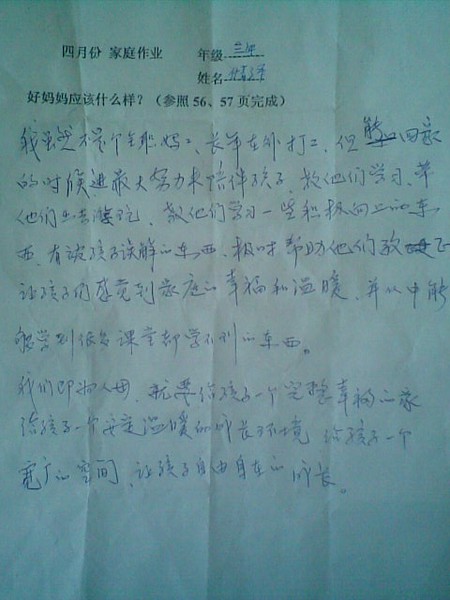 四月份 家庭作业 年级 三年
姓名
好妈妈应该什么样？（参照56、57页完成）
我虽然不是个全职妈妈、长年在外打工、但能回家
的时候进最大努力来陪伴孩子、教他们学习、带
他们出去游玩、教他们学习一些积极向上的东
西、有被孩子误解的东西、极时帮助他们改正
让孩子们感觉到家庭的幸福和温暖、并从中能
够学到很多课堂都学不到的东西。
我们即扮人母、就要给孩子一个完整幸福的家
给孩子一个安定温暖的成长环境 给孩子一个
宽广的空间、让孩子自由自在的成长。